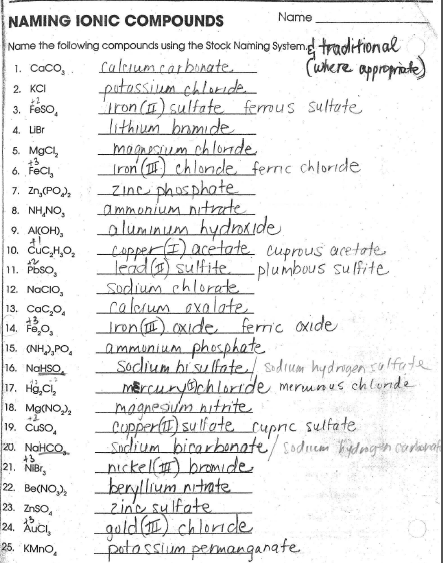 NAMING IONIC COMPOUNDS Name
Name the following compounds using the Stock Naming System. & traditional
(where appropriate)
1. CaCO₃ calcium carbonate
2. KCl potassium chloride
+2
3. FeSO₄ iron (II) sulfate ferrous sulfate
4. LiBr lithium bromide
5. MgCl₂ magnesium chloride
+3
6. FeCl₃ iron (III) chloride ferric chloride
7. Zn₃(PO₄)₂ zinc phosphate
8. NH₄NO₃ ammonium nitrate
9. Al(OH)₃ aluminum hydroxide
+1
10. CuC₂H₃O₂ copper (I) acetate cuprous acetate
+2
11. PbSO₃ lead (II) sulfite plumbous sulfite
12. NaClO₃ sodium chlorate
13. CaC₂O₄ calcium oxalate
+3
14. Fe₂O₃ iron (III) oxide ferric oxide
15. (NH₄)₃PO₄ ammonium phosphate
16. NaHSO₄ sodium bisulfate / sodium hydrogen sulfate
17. Hg₂Cl₂ mercury (I) chloride mercurous chloride
18. Mg(NO₂)₂ magnesium nitrite
+2
19. CuSO₄ cupper (II) sulfate cupric sulfate
20. NaHCO₃ sodium bicarbonate / sodium hydrogen carbonate
+3
21. NiBr₃ nickel (III) bromide
22. Be(NO₃)₂ beryllium nitrate
23. ZnSO₄ zinc sulfate
+3
24. AuCl₃ gold (III) chloride
25. KMnO₄ potassium permanganate